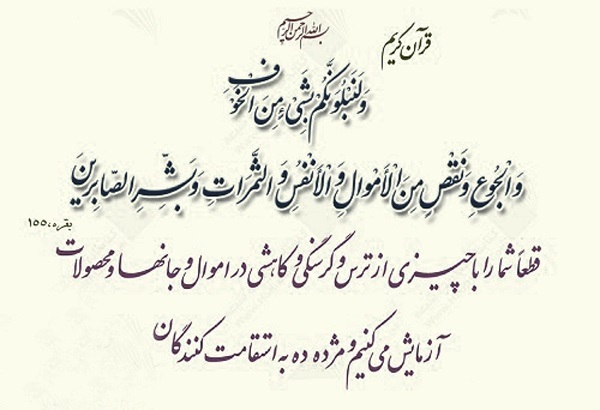 بسم الله الرحمن الرحیم
قرآن کریم
وَلَنَبْلُوَنَّكُمْ بِشَيْءٍ مِنَ الْخَوْفِ
وَالْجُوعِ وَنَقْصٍ مِنَ الْأَمْوَالِ وَالْأَنْفُسِ وَالثَّمَرَاتِ وَبَشِّرِ الصَّابِرِينَ
بقره، ۱۵۵
قطعاً شما را با چیزی از ترس و گرسنگی و کاهشی در اموال و جانها و محصولات
آزمایش می‌کنیم و مژده ده به استقامت کنندگان